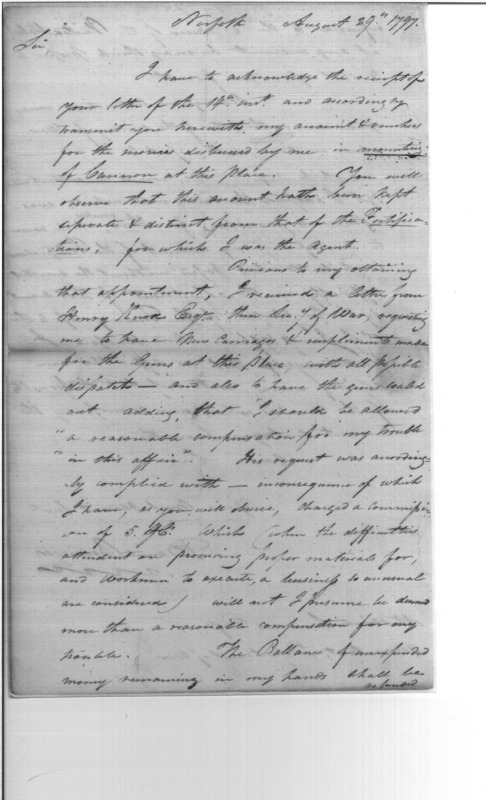 Norfolk August 29th 1797.
Sir
I have to acknowledge the receipt of
your letter of the 14th inst and accordingly
transmit you herewith, my account & vouchers
for the monies disbursed by me in mounting
of Cannon at this Place. You will
observe that this amount hath been kept
seperate & distinct from that of the Fortifica-
tions, for which I was the agent.
Previous to my obtaining
that appointment, I received a letter from
Henry Knox Esqr. then Secy of War, requesting
me to have New Carriages & impliments made
for the Guns at this Place with all possible
dispatch — and also to have the guns scaled
out. adding, that "I should be allowed
"a reasonable compensation for my trouble
"in this affair". His request was according-
ly complied with — inconsequence of which
I have, as you will observe, charged a commissi-
on of 5. Which (when the difficulties
attendant on procuring proper materials for,
and workmen to execute, a business so unusual
are considered) will not I presume be deemed
more than a reasonable compensation for my
trouble. The Ballance of unexpended
money remaining in my hands shall be
refunded